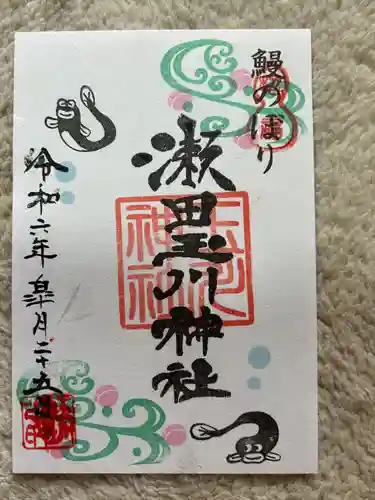 鰻のぼり
瀬田玉川神社
令和六年 皐月二十五日